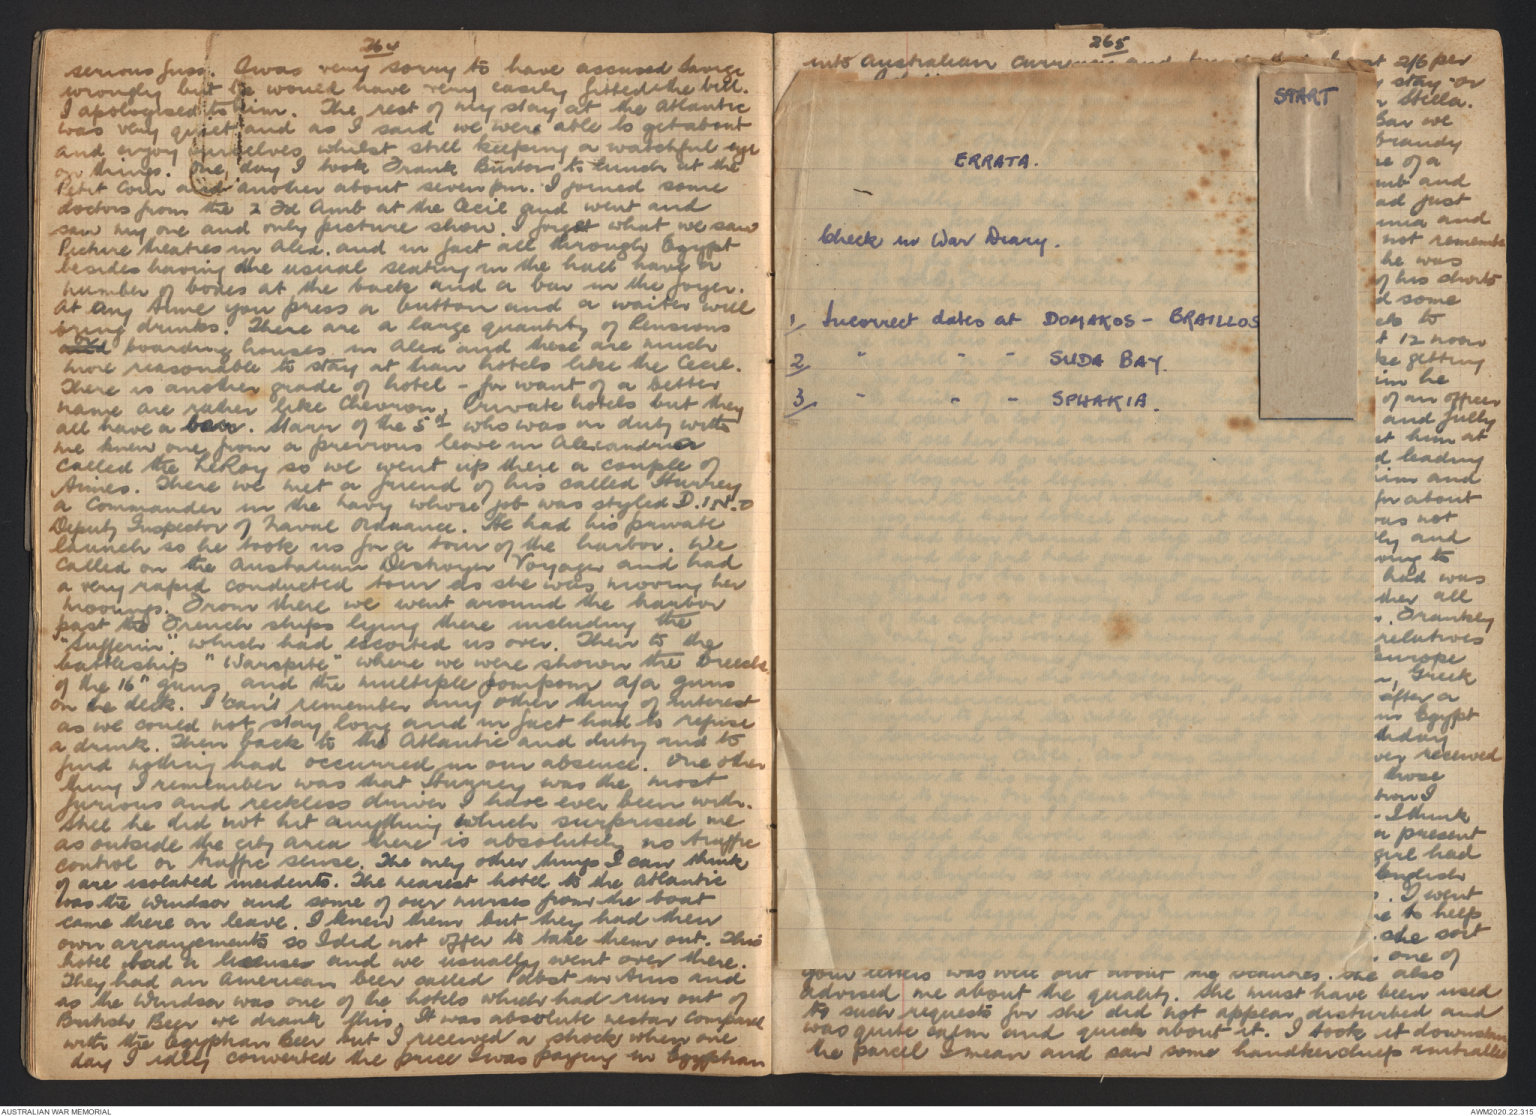 264
serious fuss. I was very sorry to have accused Savige
wrongly but he would have very easily fitted the bill.
I apologised to him. The rest of my stay at the Atlantic
was very quiet and as I said we were able to get about
and enjoy ourselves whilst still keeping a watchful eye
on things. One day I took Frank Burton to lunch at the
Petit Coin and another about seven pm. I joined some
doctors from the 2 Fd Amb at the Cecil and went and
saw my one and only picture show. I forget what we saw
Picture theatres in Alex. and in fact all through Egypt
besides having the usual seating in the hall have a
number of boxes at the back and a bar in the foyer.
At any time you press a button and a waiter will
bring drinks. There are a large quantity of Pensions
boarding houses in Alex and these are much
more reasonable to stay at than hotels like the Cecil.
There is another grade of hotel - for want of a better
name are rather like Chevron, Private hotels but they
all have a bar. Starr of the 5th who was on duty with
me knew one from a previous leave in Alexandria
called the LeRoy so we went up there a couple of
times. There we met a friend of his called Hurrey
a Commander in the navy whose job was styled D.I.N.O
Deputy Inspector of Naval Ordnance. He had his private
launch so he took us for a tour of the harbor. We
called on the Australian Destroyer Voyager and had
a very rapid conducted tour as she was moving her
moorings. From there we went around the harbor
past the French ships lying there including the
"Sufferin". which had escorted us over. Then to the
battleship "Warspite" where we were shown the breech
of the 16" guns and the multiple pompom a/a guns
on the deck. I can't remember any other thing of interest
as we could not stay long and in fact had to refuse
a drink. Then back to the Atlantic and duty and to
find nothing had occurred in our absence. One other
thing I remember was that Hurrey was the most
furious and reckless driver I have ever been with.
Still he did not hit anything which surprised me
as outside the city area there is absolutely no traffic
control or traffic sense. The only other things I can think
of are isolated incidents. The nearest hotel to the Atlantic
was the Windsor and some of our nurses from the boat
came there on leave. I knew them but they had their
own arrangements so I did not offer to take them out. This
hotel had a license and we usually went over there.
They had an American beer called Pabst in tins and
as the Windsor was one of the hotels which had run out of
British Beer we drank this. It was absolute nectar compared
with the Egyptian Beer but I received a shock when one
day I idly converted the price I was paying in Egyptian
265
into Australian currency and 2/6 per
stay or
Stella.
Bar we
brandy
of a
and
had just
and
not remember
he was
of his shorts
some
to
12 noon
getting
he
of an officer
and fully
him at
leading
and
for about
was not
and
to
had was
all
Frankey
relatives
Europe
Greek
after a
Egypt
received
those
I
I think
a present
girl had
English
I went
to help
she sort
one of
your letters was were out about me vcances. She also
advised me about the quality. She must have been used
to such requests for she did not appear disturbed and
was quite calm and quick about it. I took it downstairs
the parcel I mean and saw some handkerchiefs
START
ERRATA.
Check in War Diary.
1, Incorrect dates at DOMAKOS - BRAILLOS
2, " " " SUDA BAY.
3, " " " SPHAKIA.
AUSTRALIAN WAR MEMORIAL
AWM2020.22.315